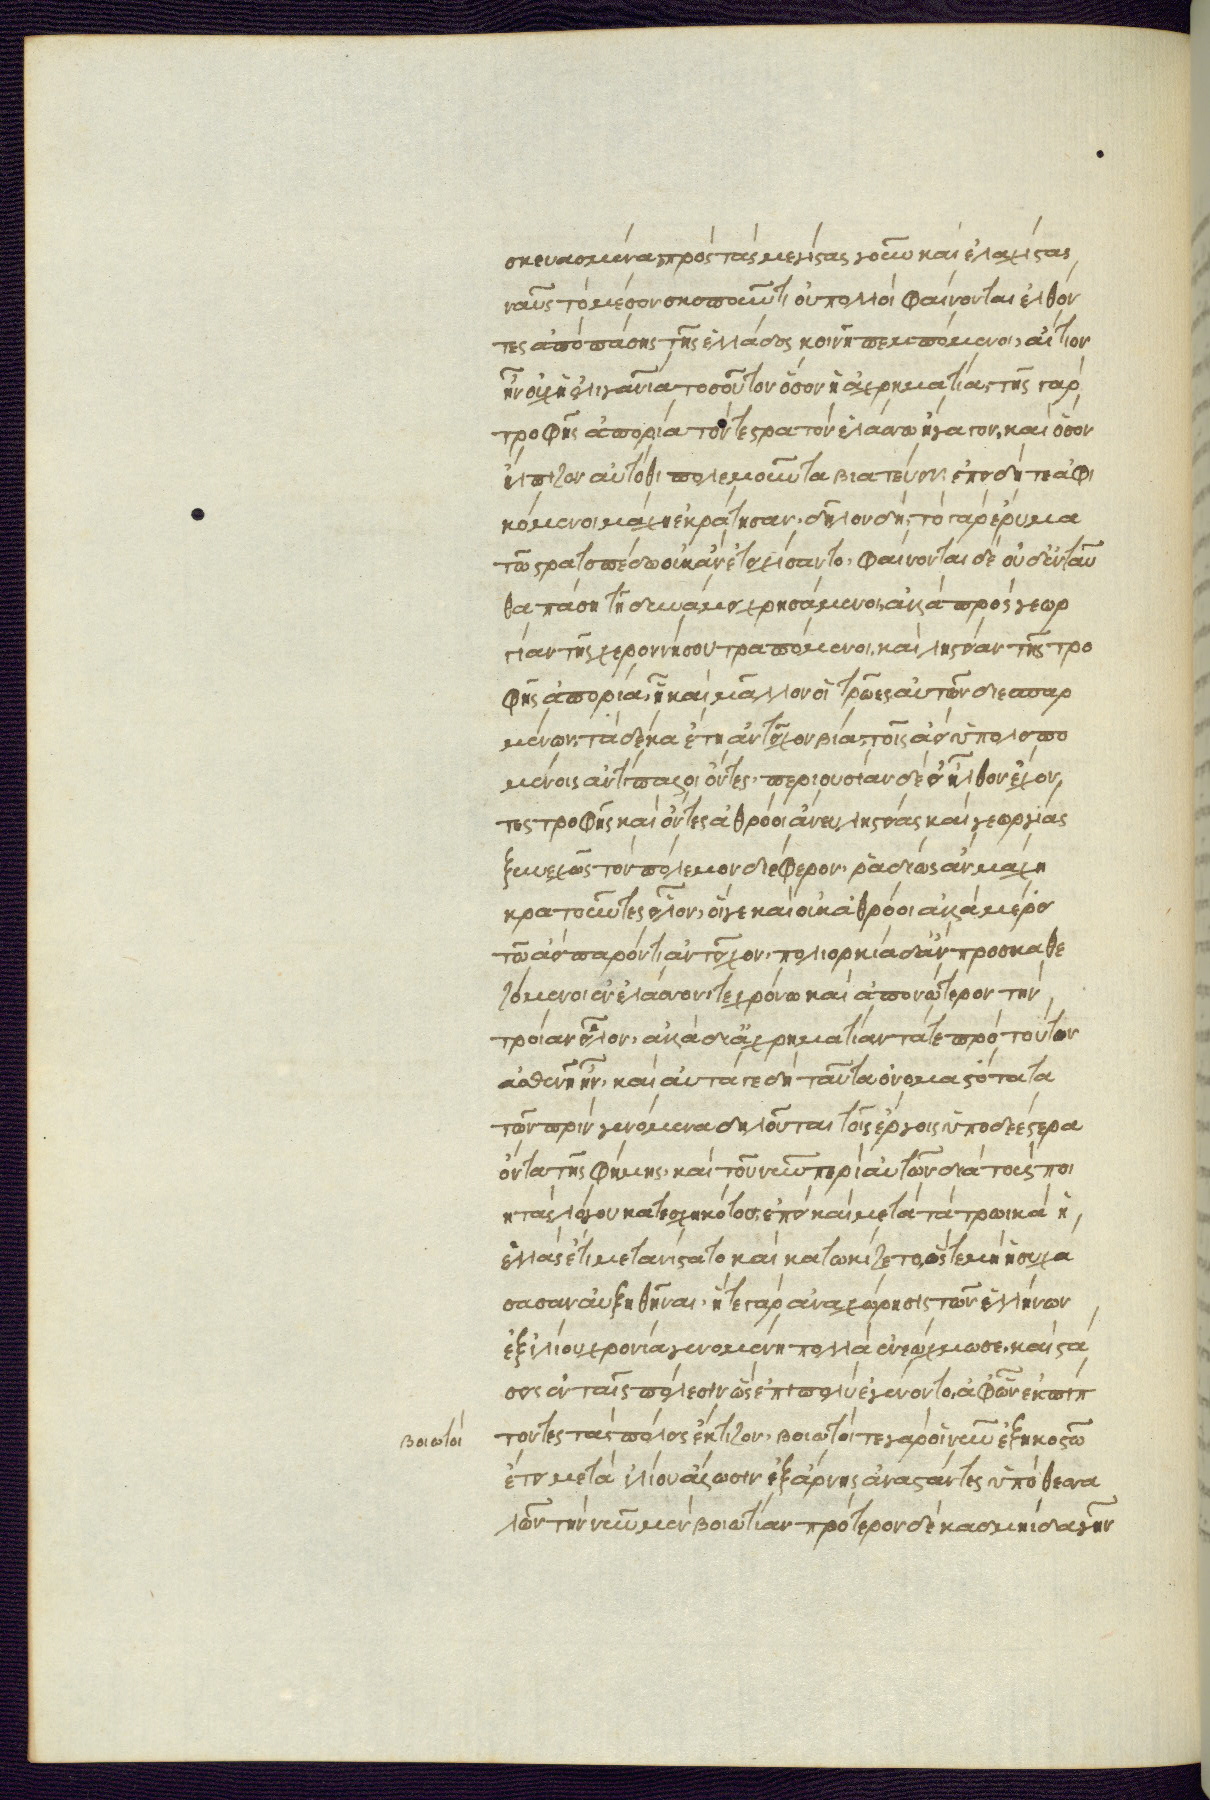 σκευασμένα, πρὸς τὰς μεγίστας γοῦν καὶ ἐλαχίστας
ναῦς τὸ μέσον σκοποῦντι οὐ πολλοὶ φαίνονται ἐλθόν
τες ἀπὸ πάσης τῆς ἑλλάδος κοινῇ πεμπόμενοι, αἴτιον
ἦν οὐχ ἡ ὀλιγανία τοσοῦτον ὅσον ἡ ἀχρηματία, τῆς γὰρ
τροφῆς ἀπορίᾳ τόν τε στρατὸν ἐλάσσω ἤγαγον, καὶ ὅσον
ἤλπιζον αὐτόθι πολεμοῦντα βιατεύσειν, ἐπειδή τε ἀφι
κόμενοι μάχῃ ἐκράτησαν, δῆλον δή, τὸ γὰρ ἔρυμα
τῷ στρατοπέδῳ οὐκ ἂν ἐτειχίσαντο, φαίνονται δὲ οὐδ' ἐνταῦ
θα πάσῃ τῇ δυνάμει χρησάμενοι, ἀλλὰ πρὸς γεωρ
γίαν τῆς χερονήσου τραπόμενοι, καὶ λῃστείαν τῆς τρο
φῆς ἀπορίᾳ, ᾗ καὶ μᾶλλον οἱ τρῶες αὐτῶν διεσπαρ
μένων, τὰ δέκα ἔτη ἀντεῖχον βίᾳ, τοῖς ἀεὶ ὑπολειπο
μένοις ἀντίπαλοι ὄντες, περιουσίαν δὲ εἰ ἦλθον ἔχον
τες τροφῆς καὶ ὄντες ἀθρόοι ἄνευ λῃστείας καὶ γεωργίας
ξυνεχῶς τὸν πόλεμον διέφερον, ῥᾳδίως ἂν μάχῃ
κρατοῦντες εἷλον, οἵ γε καὶ οὐκ ἀθρόοι ἀλλὰ μέρει
τῷ ἀεὶ παρόντι ἀντεῖχον, πολιορκίᾳ δ' ἂν προσκαθε
ζόμενοι ἐν ἐλάσσονί τε χρόνῳ καὶ ἀπονώτερον τὴν
τροίαν εἷλον, ἀλλὰ δι' ἀχρηματίαν τά τε πρὸ τούτων
ἀσθενῆ ἦν, καὶ αὐτά γε δὴ ταῦτα ὀνομαστότατα
τῶν πρὶν γενόμενα δηλοῦται τοῖς ἔργοις ὑποδεέστερα
ὄντα τῆς φήμης, καὶ τοῦ νῦν περὶ αὐτῶν διὰ τοὺς ποι
ητὰς λόγου κατεσχηκότος, ἐπεὶ καὶ μετὰ τὰ τρωικὰ ἡ
ἑλλὰς ἔτι μετανίστατο καὶ κατῳκίζετο, ὥστε μὴ ἡσυχά
σασαν αὐξηθῆναι, ἥ τε γὰρ ἀναχώρησις τῶν ἑλλήνων
ἐξ ἰλίου χρονία γενομένη πολλὰ ἐνεόχμωσε, καὶ στά
σεις ἐν ταῖς πόλεσιν ὡς ἐπιπολὺ ἐγένοντο, ἀφ' ὧν ἐκπίπ
τοντες τὰς πόλεις ἔκτιζον, βοιωτοί τε γὰρ οἱ νῦν ἑξηκοστῷ
ἔτει μετὰ ἰλίου ἅλωσιν ἐξ ἄρνης ἀναστάντες ὑπὸ θεσσα
λῶν τὴν νῦν μὲν βοιωτίαν πρότερον δὲ καδμηίδα γῆν
βοιωτοί